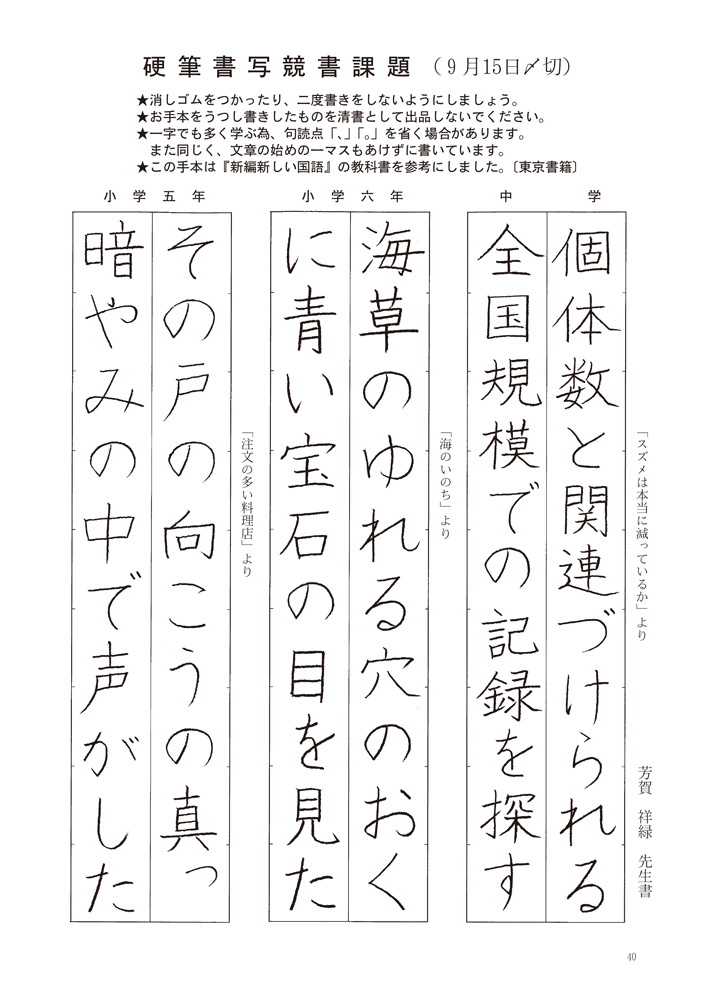 硬筆書写競書課題（９月15日〆切）
★消しゴムをつかったり、二度書きをしないようにしましょう。
★お手本をうつし書きしたものを清書として出品しないでください。
★一字でも多く学ぶ為、句読点「、」「。」を省く場合があります。
また同じく、文章の始めの一マスもあけずに書いています。
★この手本は『新編新しい国語』の教科書を参考にしました。〔東京書籍〕
中学
「スズメは本当に減っているか」より
個体数と関連づけられる
全国規模での記録を探す
小学六年
「海のいのち」より
海草のゆれる穴のおく
に青い宝石の目を見た
小学五年
「注文の多い料理店」より
その戸の向こうの真っ
暗やみの中で声がした
芳賀 祥緑 先生書
40